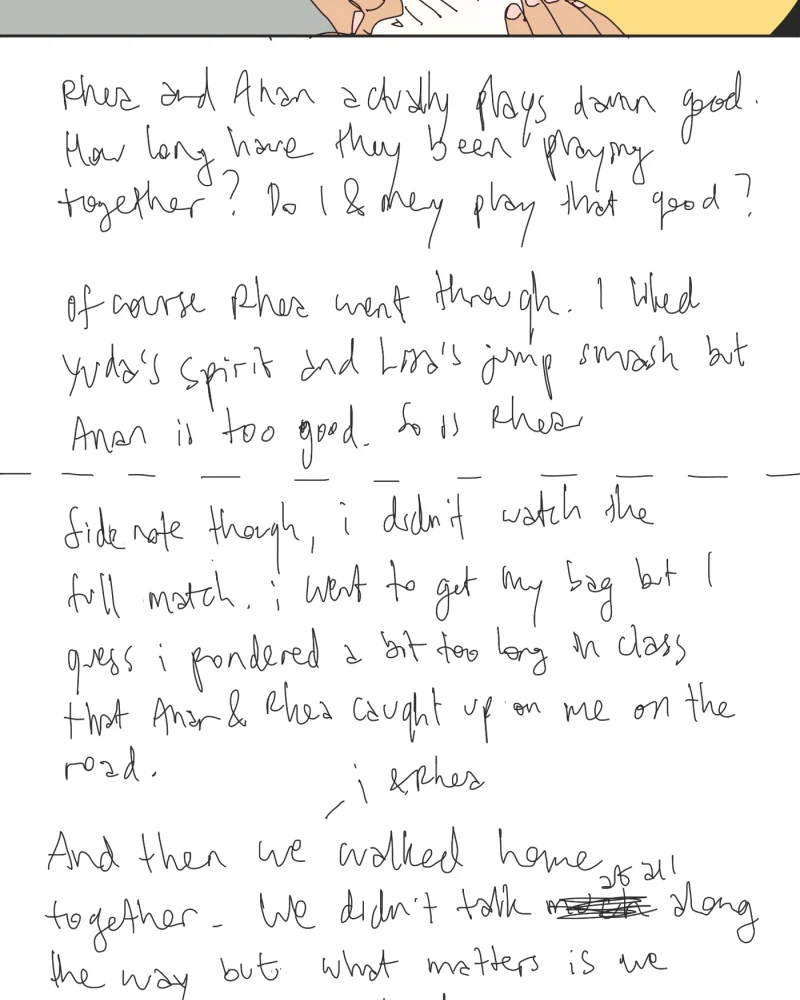 Rhea and Anan actually plays damn good.
How long have they been playing
together? Do I & they play that good?
Of course Rhea went through. I liked
Yuda's spirit and Lisa's jump smash but
Anan is too good. So is Rhea
Side note though, i didn't watch the
full match. i went to get my bag but I
guess i pondered a bit too long in class
that Anan & Rhea caught up on me on the
road.
i & Rhea
And then we walked home
at all
together. We didn't talk along
the way but what matters is we